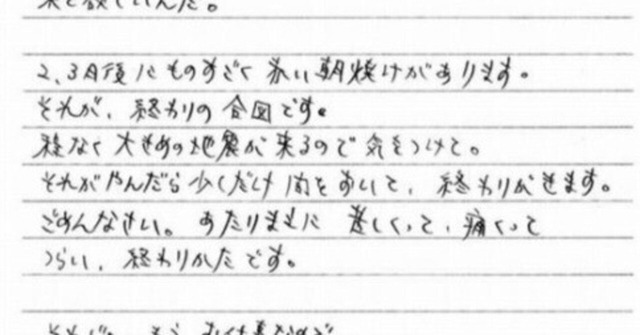 来て欲しいんだ。
2、3日後にものすごく赤い朝焼けがあります。
それが、終わりの合図です。
程なく大きめの地震が来るので気をつけて。
それがやんだら少しだけ間をおいて、終わりがきます。
ごめんなさい。あたりまえに苦しくって、痛くって
つらい、終わりかたです。